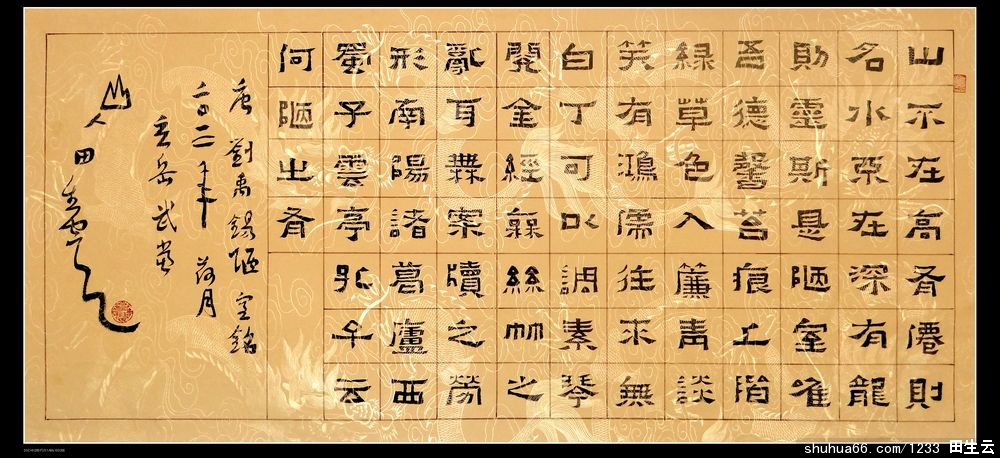 山不在高有僊則
名水不在深有龍
則靈斯是陋室惟
吾德馨苔痕上階
緑草色入簾青談
笑有鴻儒往來無
白丁可以調素琴
閱金經無絲竹之
亂耳無案牘之勞
形南陽諸葛廬西
蜀子雲亭孔子云
何陋之有
唐劉禹錫陋室銘
二〇一二年荷月
岳武
山人田生雲
shuhua66.com/1233 田生云